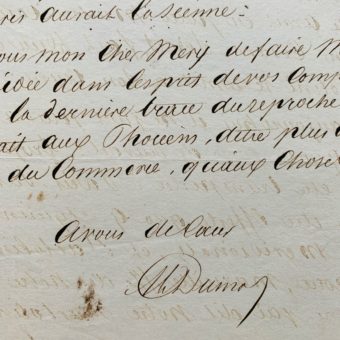 aurait la sienne.
vous mon cher Mery de faire
idée dans l'esprit de vos Comp
la dernière trace du reproche
fait aux Phocéens, d'être plus
du Commerce, qu'aux Choses
avous de Cœur
Dumas